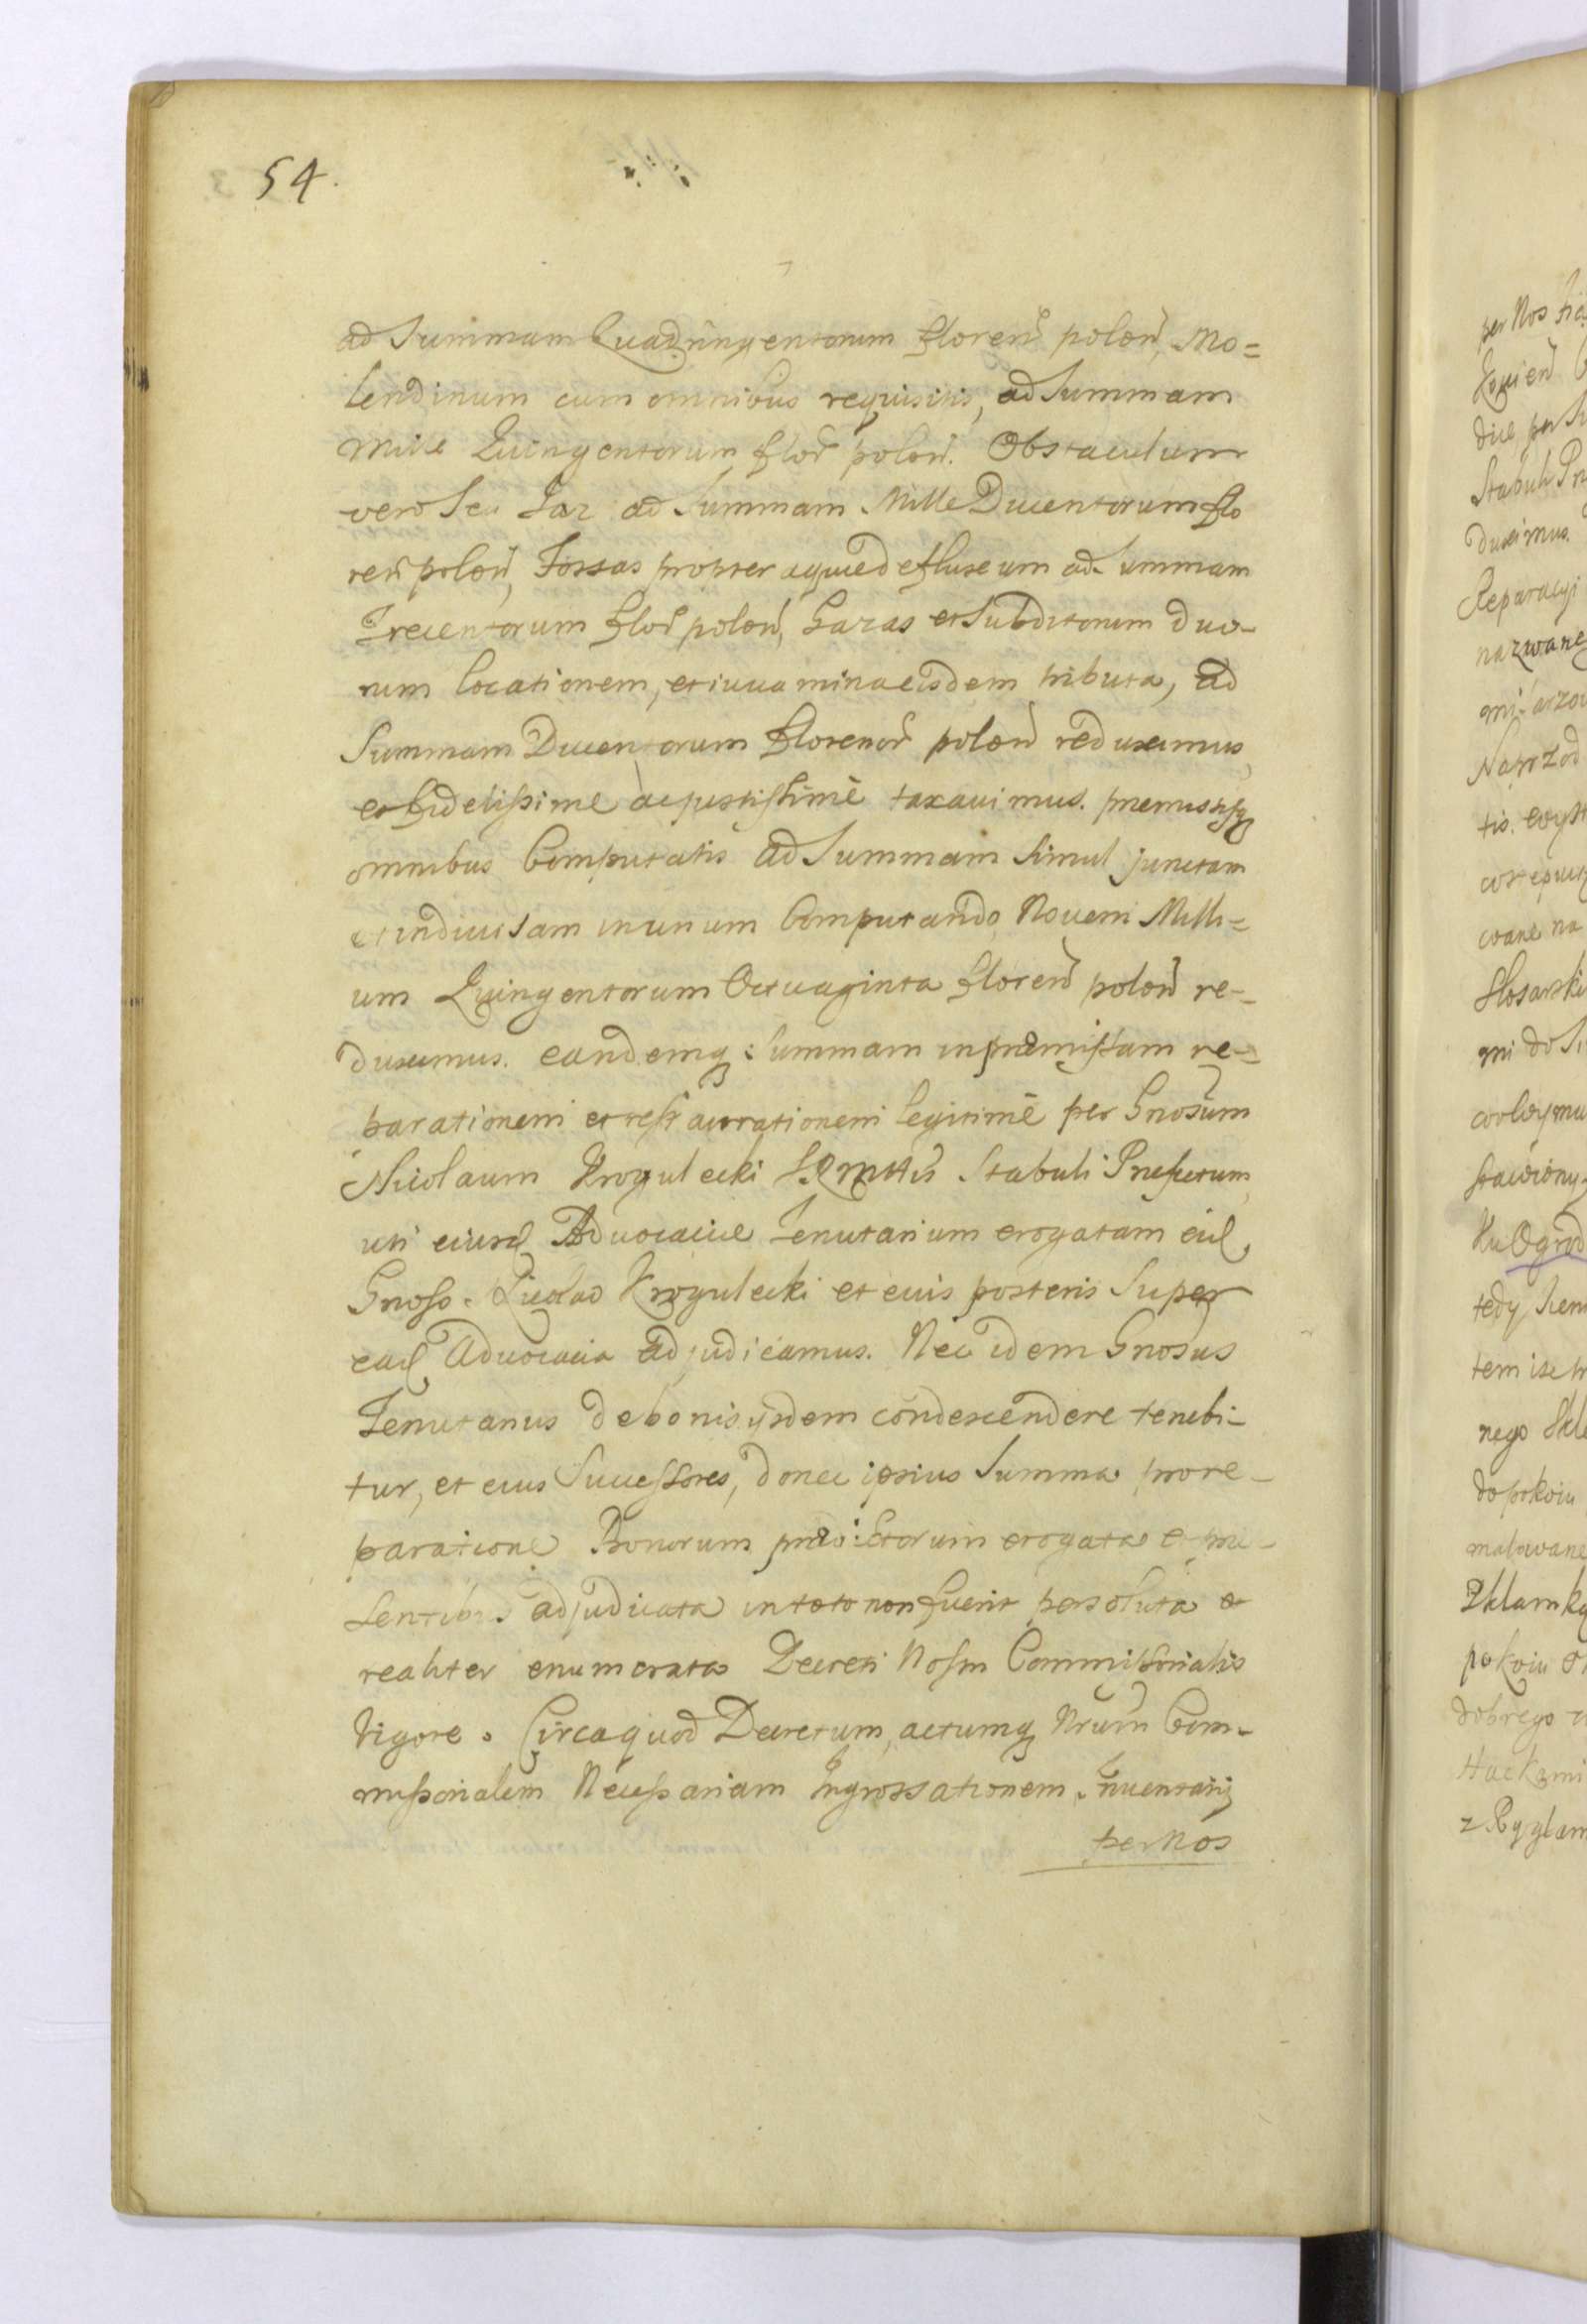 54.
ad Summam Quadringentorum floreñ poloñ, Mo=
lendinum cum omnibus requisitis, ad Summam
Mille Quingentorum flor̃ poloñ. Obstaculum
vero Seu Jaz ad Summam Mille Ducentorum flo
reñ poloñ, Fossas propter aquæ defluxum ad Summam
Trecentorum flor̃ poloñ, Gazas et Subditorum duo-
rum locationem, et iuuamina eisdem tributa, ad
Summam Ducentorum florenor̃ poloñ reduximus,
et fidelissime ac justissimè taxauimus. præmissisq
omnibus Computatis ad Summam Simul junctam
et indiuisam in unum Computando, Nouem Milli=
um Quingentorum Octuaginta floreñ poloñ re-
duximus. eandemq: Summam in præmissam re-
parationem et restaurationem legitimè per Gnosum
Nicolaum Krogulecki Stabuli Præfectum,
uti eiusd Aduocatiæ Tenutarium erogatam eid,
Gnoso. Nicolao Krogulecki et eius posteris Super
ead Aduocatia adjudicamus. Nec idem Gnosus
Tenutarius de bonis ijsdem condescendere tenebi-
tur, et eius Successores, donec ipsius Summa pro re-
paratione Bonorum prædictorum erogata et præ-
sentibus adjudicata in toto non fuerit persoluta et
realiter enumerata Decreti Nostri Commissorialis
Vigore. Circa quod Decretum, actumq Nrum Com-
missorialem Necessariam Ingrossationem Inuentarij
per Nos
per Nos
die per
Stabuli
duximus.
Reparacyi
nazwane
Naprzod
tis.
wane na
Slosarski
mi do
Ku Ogrod
tedy
nego
do pokoiu
malowane
pokoiu
dobrego
Haczkami
z Ryglam